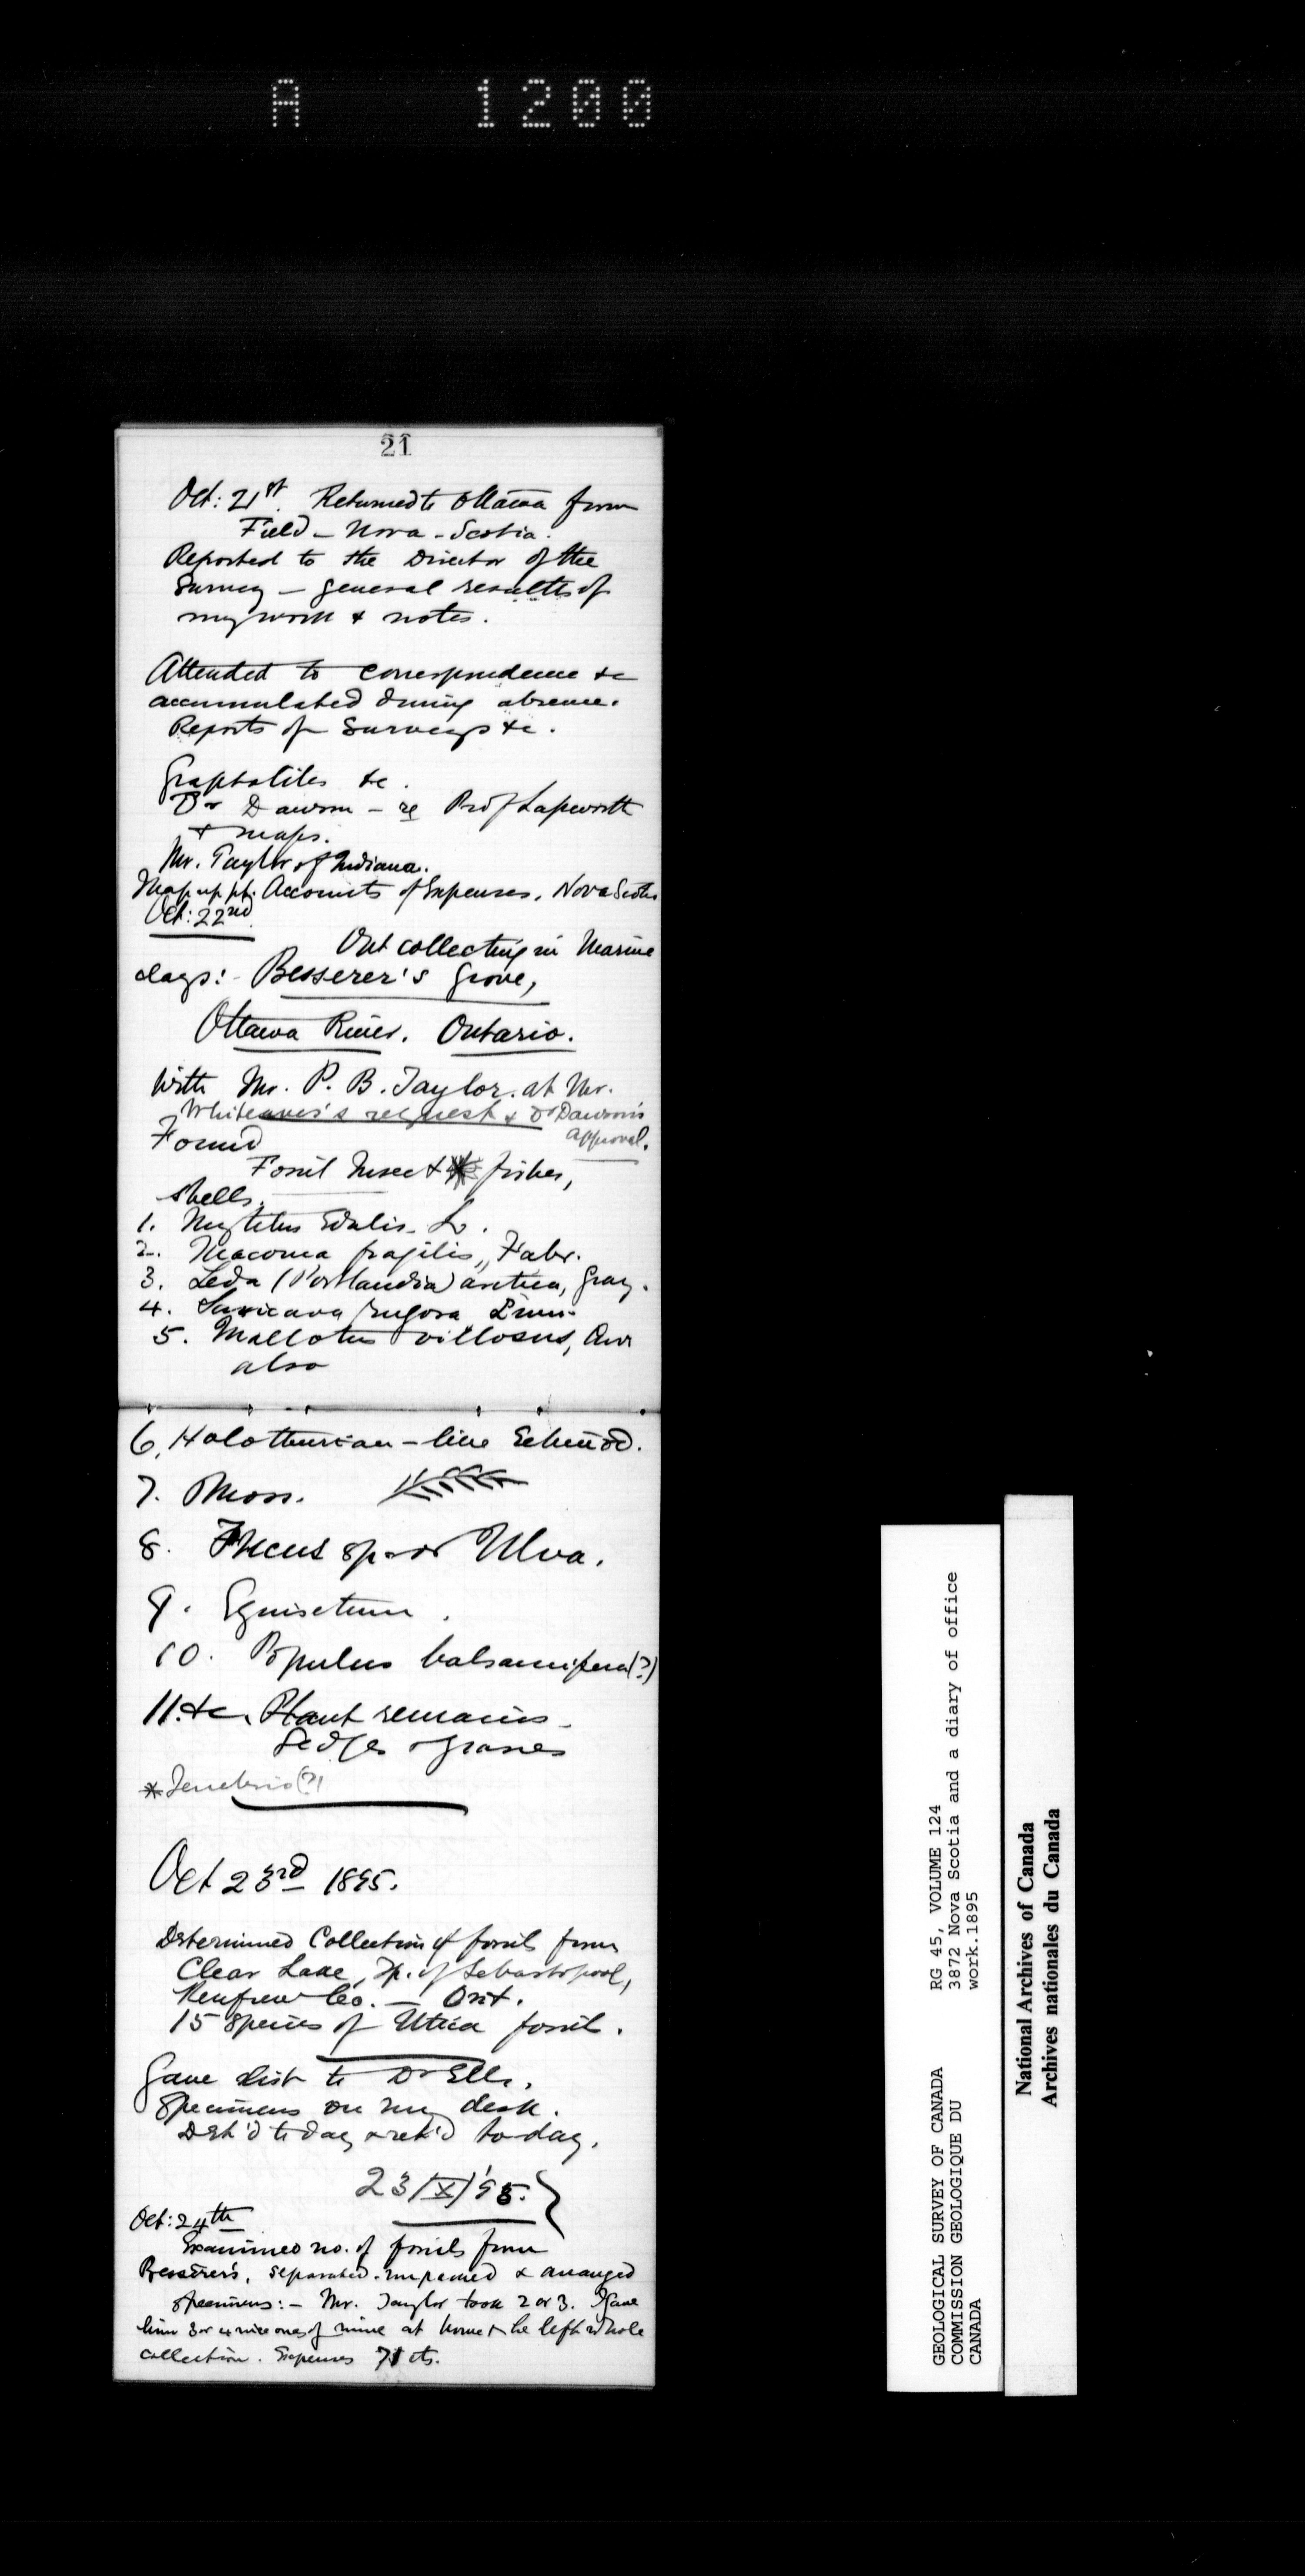 A 1200
21
Oct: 21st. Returned to Ottawa from
Field - Nova - Scotia.
Reported to the Director of the
Survey - general results of
my work & notes.
Attended to correspondence &c
accumulated during absence.
Reports of Surveys &c.
Graptolites &c.
Dr Dawson - re Prof Lapworth
& maps.
Mr. Taylor of Indiana.
Accounts of Expenses, Nova Scotia
Oct: 22nd.
Out collecting in Marine
clays: - Besserer's Grove,
Ottawa River. Ontario.
With Mr. P. B. Taylor. at Mr.
Whiteaves's request & Dr Dawson's
approval.
Found
Fossil Insect * fishes,
shells.
1. Mytilus Edulis. L.
2. Macoma fragilis, Fabr.
3. Leda (Portlandia) arctica, Gray.
4. Saxicava rugosa Linn.
5. Mallotus villosus, Cuv
also
6. Holothurian - like Echinod.
7. Moss.
8. Fucus sp. or Ulva.
9. Equisetum.
10. Populus balsamifera (?)
11. &c. Plant remains -
Sedges & grasses
* Tenebrio (?)
Oct 23rd 1895.
Determined Collection of fossils from
Clear Lake, Tp. of Sebastopool,
Renfrew Co. - Ont.
15 species of Utica fossils.
Gave list to Dr Ells.
Specimens on my desk.
Det'd to day & ret'd to-day.
23/X/'95.
Oct: 24th
Examined no. of fossils from
Besserer's, separated & arranged
specimens: - Mr. Taylor took 2 or 3. I gave
him 3 or 4 nice ones of mine at home & he left whole
collection. Expenses 71 cts.
GEOLOGICAL SURVEY OF CANADA
COMMISSION GEOLOGIQUE DU
CANADA
RG 45, VOLUME 124
3872 Nova Scotia and a diary of office
work.1895
National Archives of Canada
Archives nationales du Canada